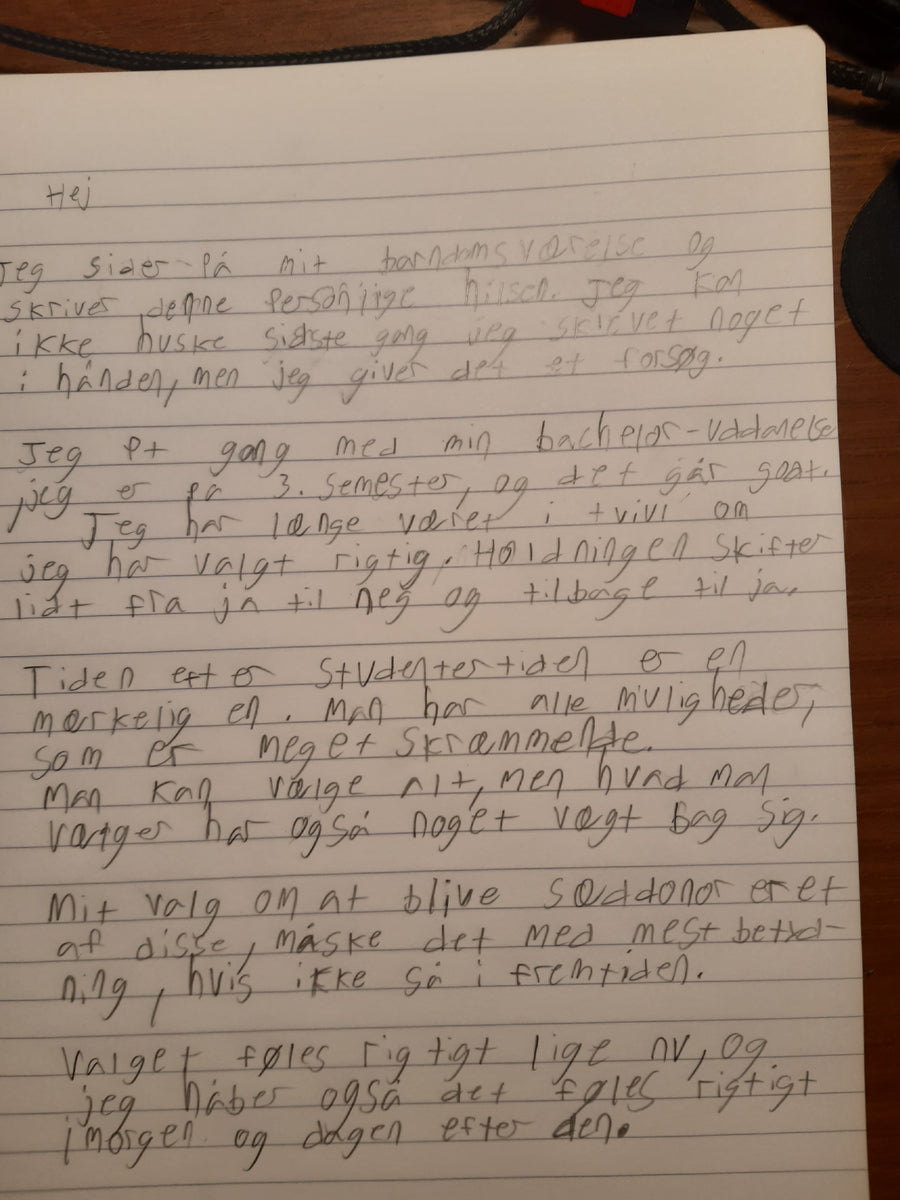 Hej
Jeg sider på mit barndomsværelse og
skriver denne personlige hilsen. Jeg kan
ikke huske sidste gang jeg skrevet noget
i hånden, men jeg giver det et forsøg.
Jeg pt gang med min bachelor-uddanelse
jeg er på 3. semester, og det går godt.
Jeg har længe været i tvivl om
jeg har valgt rigtig. Holdningen skifter
lidt fra ja til nej og tilbage til ja.
Tiden efter studentertiden er en
mærkelig en. Man har alle muligheder,
som er meget skræmmende.
Man kan vælge alt, men hvad man
vælger har også noget vægt bag sig.
Mit valg om at blive sæddonor er et
af disse, måske det med mest betyd-
ning, hvis ikke så i fremtiden.
Valget føles rigtigt lige nu, og
jeg håber også det føles rigtigt
i morgen og dagen efter den.